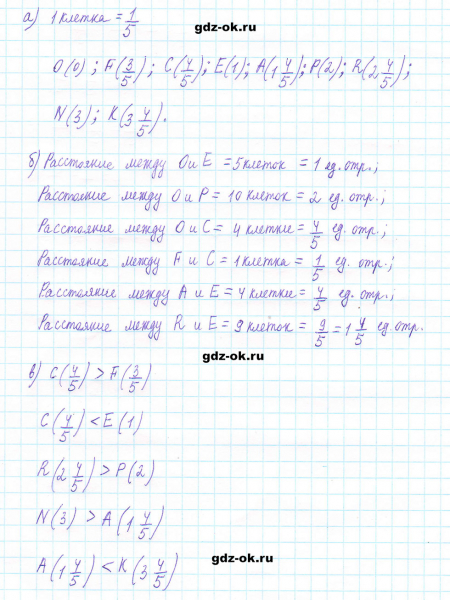 gdz-ok.ru
а) 1 клетка = 1/5
O(0); F(3/5); C(4/5); E(1); A(1 4/5); P(2); R(2 4/5);
N(3); K(3 4/5).
б) Расстояние между O и E = 5 клеток = 1 ед. отр.;
Расстояние между O и P = 10 клеток = 2 ед. отр.;
Расстояние между O и C = 4 клетки = 4/5 ед. отр.;
Расстояние между F и C = 1 клетка = 1/5 ед. отр.;
Расстояние между A и E = 4 клетки = 4/5 ед. отр.;
Расстояние между R и E = 9 клеток = 9/5 = 1 4/5 ед. отр.
gdz-ok.ru
в) C(4/5) > F(3/5)
C(4/5) < E(1)
R(2 4/5) > P(2)
N(3) > A(1 4/5)
A(1 4/5) < K(3 4/5)
gdz-ok.ru